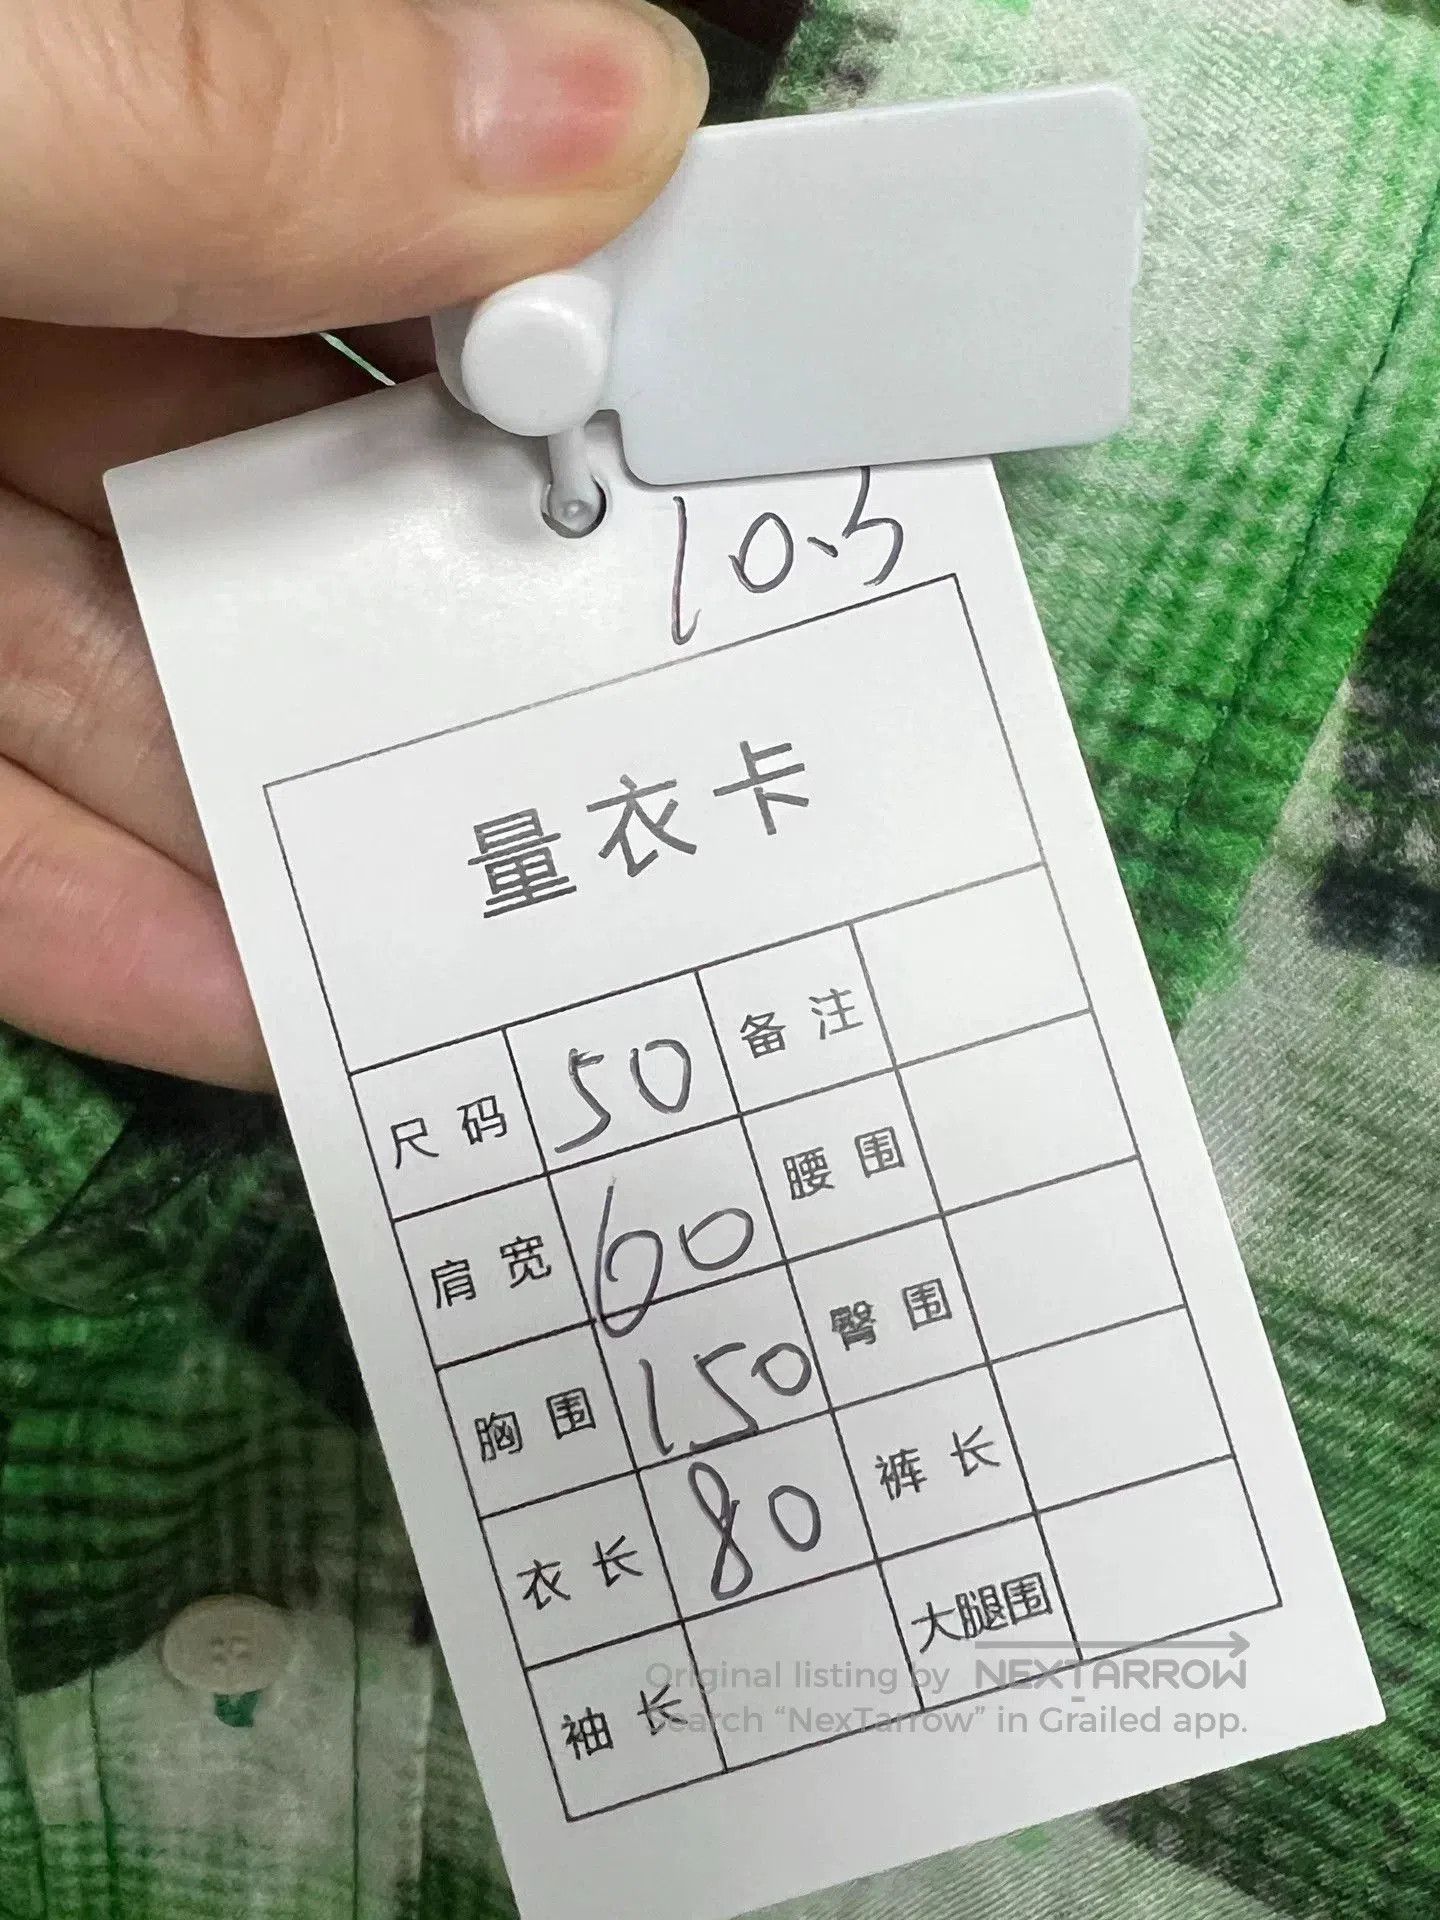 10.3
量衣卡
尺码 50 备注
肩宽 60 腰围
胸围 150 臀围
衣长 80 裤长
袖长 大腿围
Original listing by NEXTARROW
Search “NexTarrow” in Grailed app.